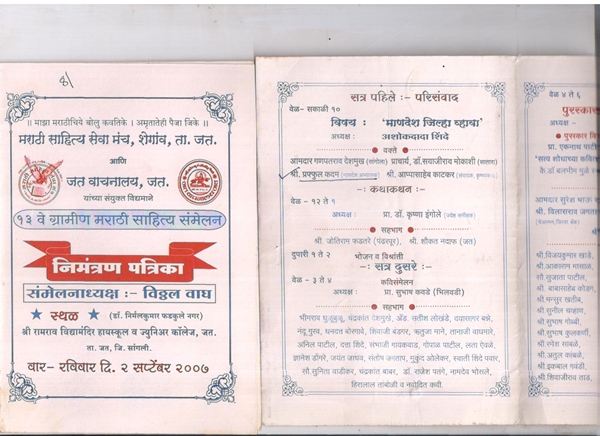 8/
॥ माझा मराठीचिये बोलु कवतिके । अमृतातेही पैजा जिंके ॥
मराठी साहित्य सेवा मंच, शेगांव, ता. जत.
आणि
जत वाचनालय, जत.
यांच्या संयुक्त विद्यमाने
१३ वे ग्रामीण मराठी साहित्य संमेलन
निमंत्रण पत्रिका
संमेलनाध्यक्ष :- विठ्ठल वाघ
स्थळ
(डॉ. निर्मलकुमार फडकुले नगर)
श्री रामराव विद्यामंदिर हायस्कूल व ज्युनिअर कॉलेज, जत.
ता. जत, जि. सांगली.
वार- रविवार दि. २ सप्टेंबर २००७
सत्र पहिले :- परिसंवाद
वेळ- सकाळी १०
विषय : 'माणदेश जिल्हा व्हावा'
अध्यक्ष : अशोकदादा शिंदे
वक्ते
आमदार गणपतराव देशमुख (सांगोला) प्राचार्य, डॉ.सयाजीराव मोकाशी (सातारा)
श्री. प्रफुल कदम श्री. आप्पासाहेब काटकर
- कथाकथन :-
वेळ - १२ ते १
अध्यक्ष : प्रा. डॉ. कृष्णा इंगोले
सहभाग
श्री. जोतिराम फडतरे (पंढरपूर), श्री. शौकत नदाफ (जत)
दुपारी १ ते २ भोजन व विश्रांती
- सत्र दुसरे :-
वेळ - ३ ते ४ कविसंमेलन
अध्यक्ष : प्रा. सुभाष कवडे (भिलवडी)
सहभाग
भीमराव धुळूबुळू, चंद्रकांत देशमुखे, अॅड. सतीश लोखंडे, दयासागर बन्ने,
नंदू गुरव, धनदत्त बोरगावे, शिवाजी बंडगर, ऋतुजा माने, तानाजी वाघमारे,
अनिल पाटील, दत्ता शिंदे, संभाजी गायकवाड, गोपाळ पाटील, लता ऐवळे,
ज्ञानेश डोंगरे, जयंत जाधव, संतोष जगताप, मुकुंद ओलेकर, स्वाती शिंदे पवार,
सौ सुनिता वाडीकर, चंद्रकांत बाबर, डॉ. राजेश पतंगे, नामदेव भोसले,
हिरालाल तांबोळी व नवोदित कवी.
वेळ ४ ते ६
पुरस्का
अध्यक्ष -
प्रा. एकनाथ पाटी
आमदार सुरेश भाऊ
श्री. विलासराव जगता
श्री.विजयकुमार खाडे,
श्री.आकाराम मासाळ,
सौ.सुजाता पाटील,
श्री. बाबासाहेब कोडग,
श्री मन्सूर खतीब,
श्री.सुनील चव्हाण,
श्री.सुभाष गोब्बी,
श्री.सुभाष कुलकर्णी,
श्री.रमेश साबळे,
श्री.अतुल कांबळे,
श्री.इकबाल गवंडी,
श्री.शिवाजीराव ताड,